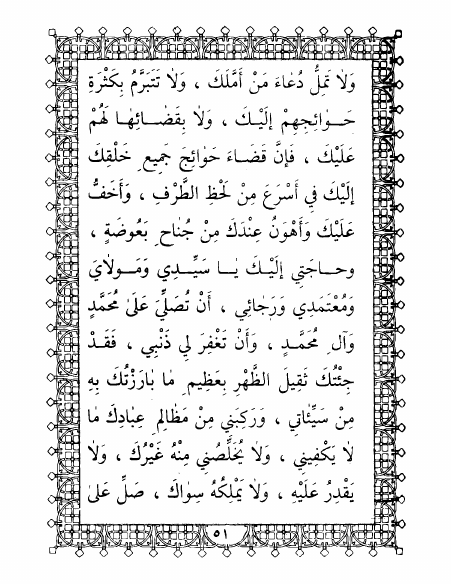 وَلاٰ تَمِلُّ دُعٰاءَ مَنْ أَمَّلَكَ ، وَلاٰ تَتَبَرَّمُ بِكَثْرَةِ
حَــوٰائِجِهِمْ إِلَيْــكَ ، وَلاٰ بِقَضٰــائِهٰــا لَهُمْ
عَلَيْكَ ، فَإِنَّ قَضٰــاءَ حَوٰائِجَ جَمِيعِ خَلْقِكَ
إِلَيْكَ في أَسْرَعَ مِنْ لَحْظِ الطَّرْفِ ، وَأَخَفُّ
عَلَيْكَ وَأَهْوَنُ عِنْدَكَ مِنْ جُنٰاحِ بَعُوضَةٍ ،
وحٰــاجَتي إِلَيْــكَ يٰــا سَيِّــدِي وَمَــوْلاٰيَ
وَمُعْتَمَدِي وَرَجٰائِي ، أَنْ تُصَلِّيَ عَلىٰ مُحَمَّدٍ
وَآلِ مُحَمَّــدٍ ، وَأَنْ تَغْفِرَ لِي ذَنْبِي ، فَقَــدْ
جِئْتُكَ ثَقِيلَ الظَّهْرِ بِعَظِيمِ مٰا بٰارَزْتُكَ بِهِ
مِنْ سَيِّئٰاتِي ، وَرَكِبَنِي مِنْ مَظٰالِمِ عِبٰادِكَ مٰا
لاٰ يَكْفِينِي ، وَلاٰ يُخَلِّصُنِي مِنْهُ غَيْرُكَ ، وَلاٰ
يَقْدِرُ عَلَيْهِ ، وَلاٰ يَمْلِكُهُ سِوٰاكَ ، صَلِّ عَلىٰ
٥١